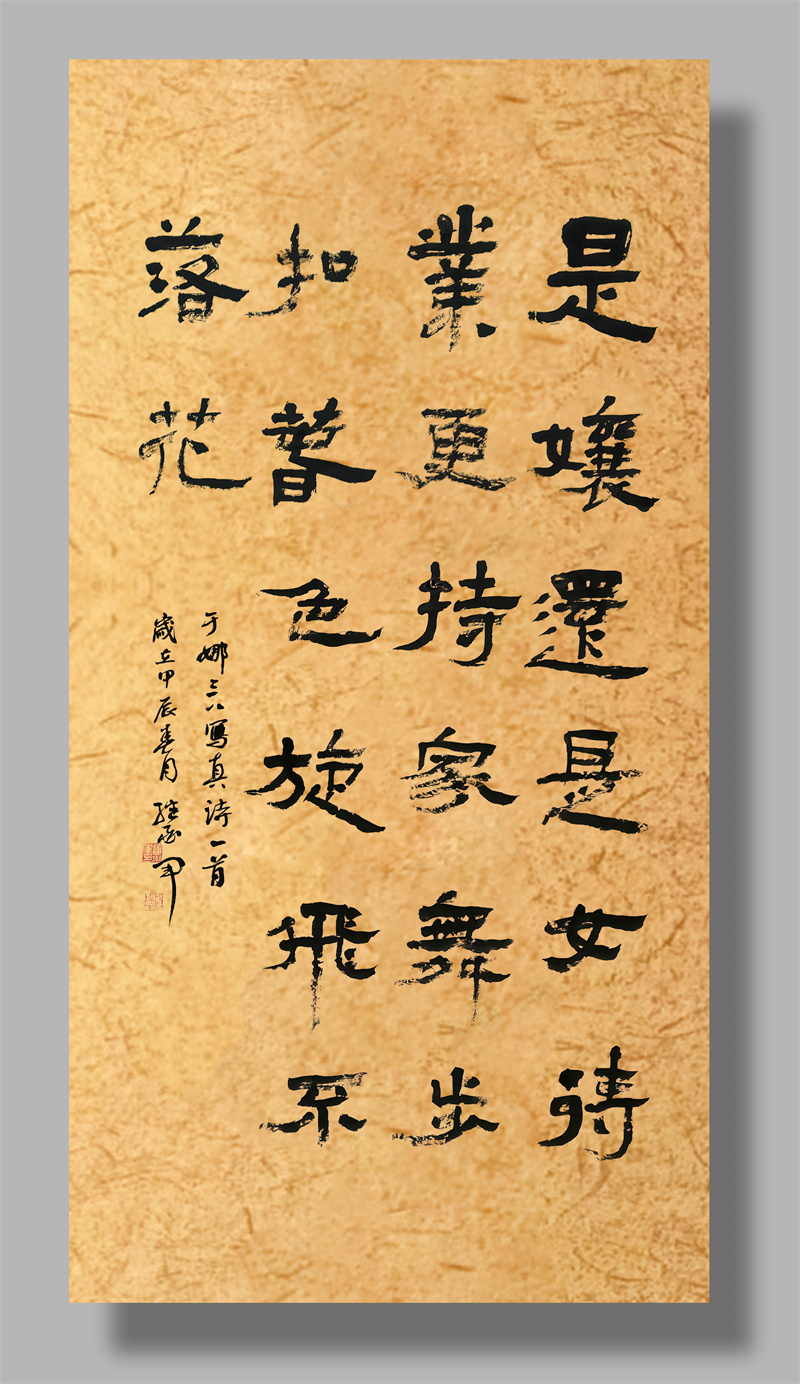 是孃還是女待
業更持家舞步
扣暮色旋飛不
落花
于娜三八寫真诗一首
歲在甲辰春月